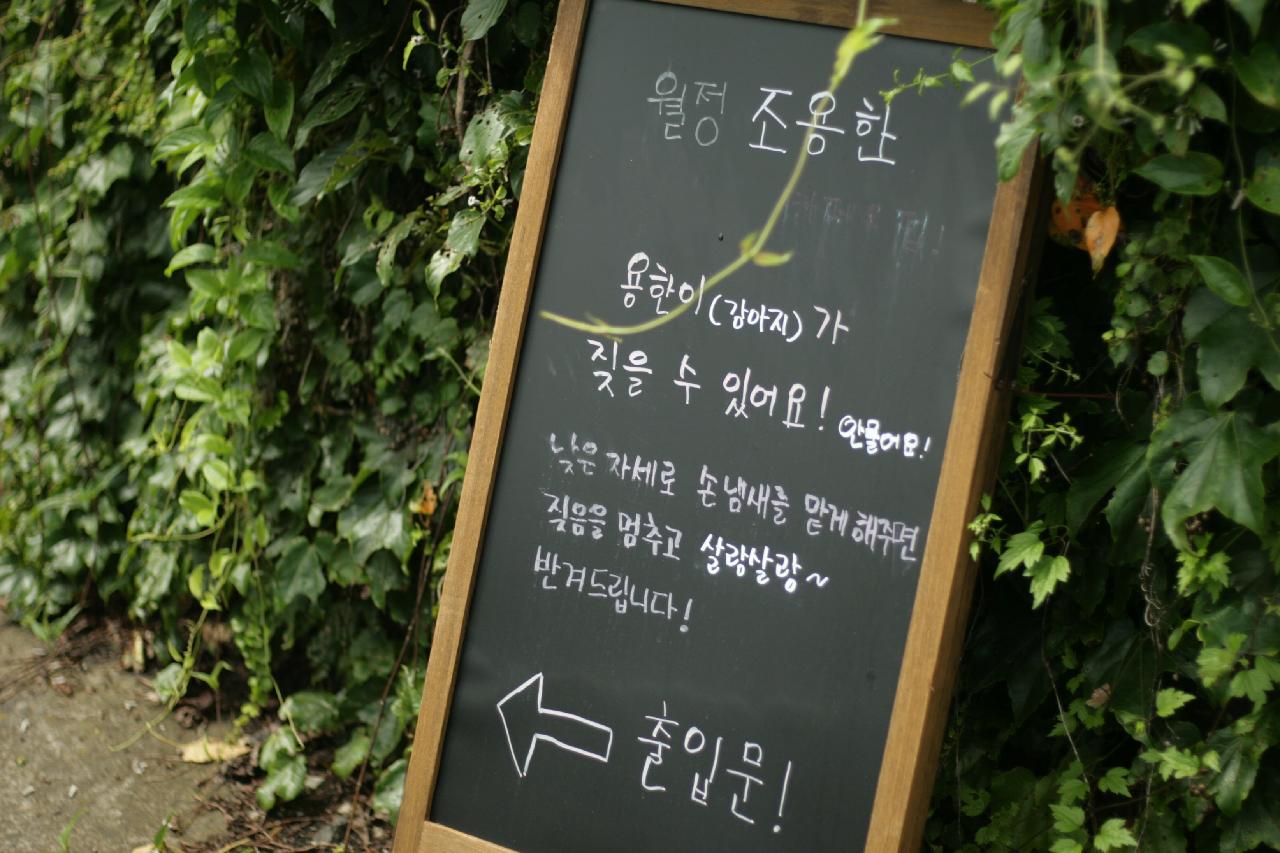 월정 조용한
용한이(강아지)가
짖을 수 있어요! 안물어요!
낮은 자세로 손냄새를 맡게 해주면
짖음을 멈추고 살랑살랑~
반겨드립니다!
출입문!